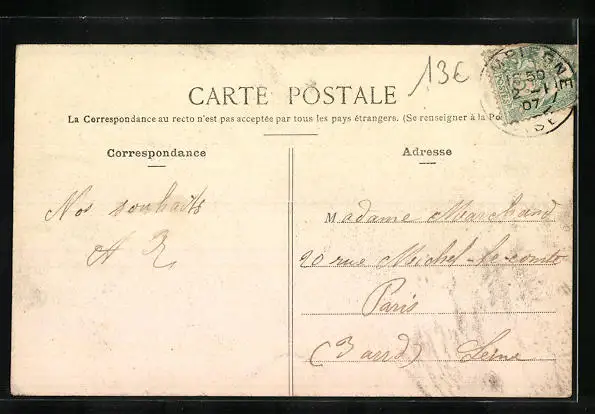 13€
CARTE POSTALE
La Correspondance au recto n'est pas acceptée par tous les pays étrangers. (Se renseigner à la Po
Correspondance
Adresse
Nos souhaits
Madame Marchand
20 rue Michel-le-comte
Paris
(3 arrd) Seine
07